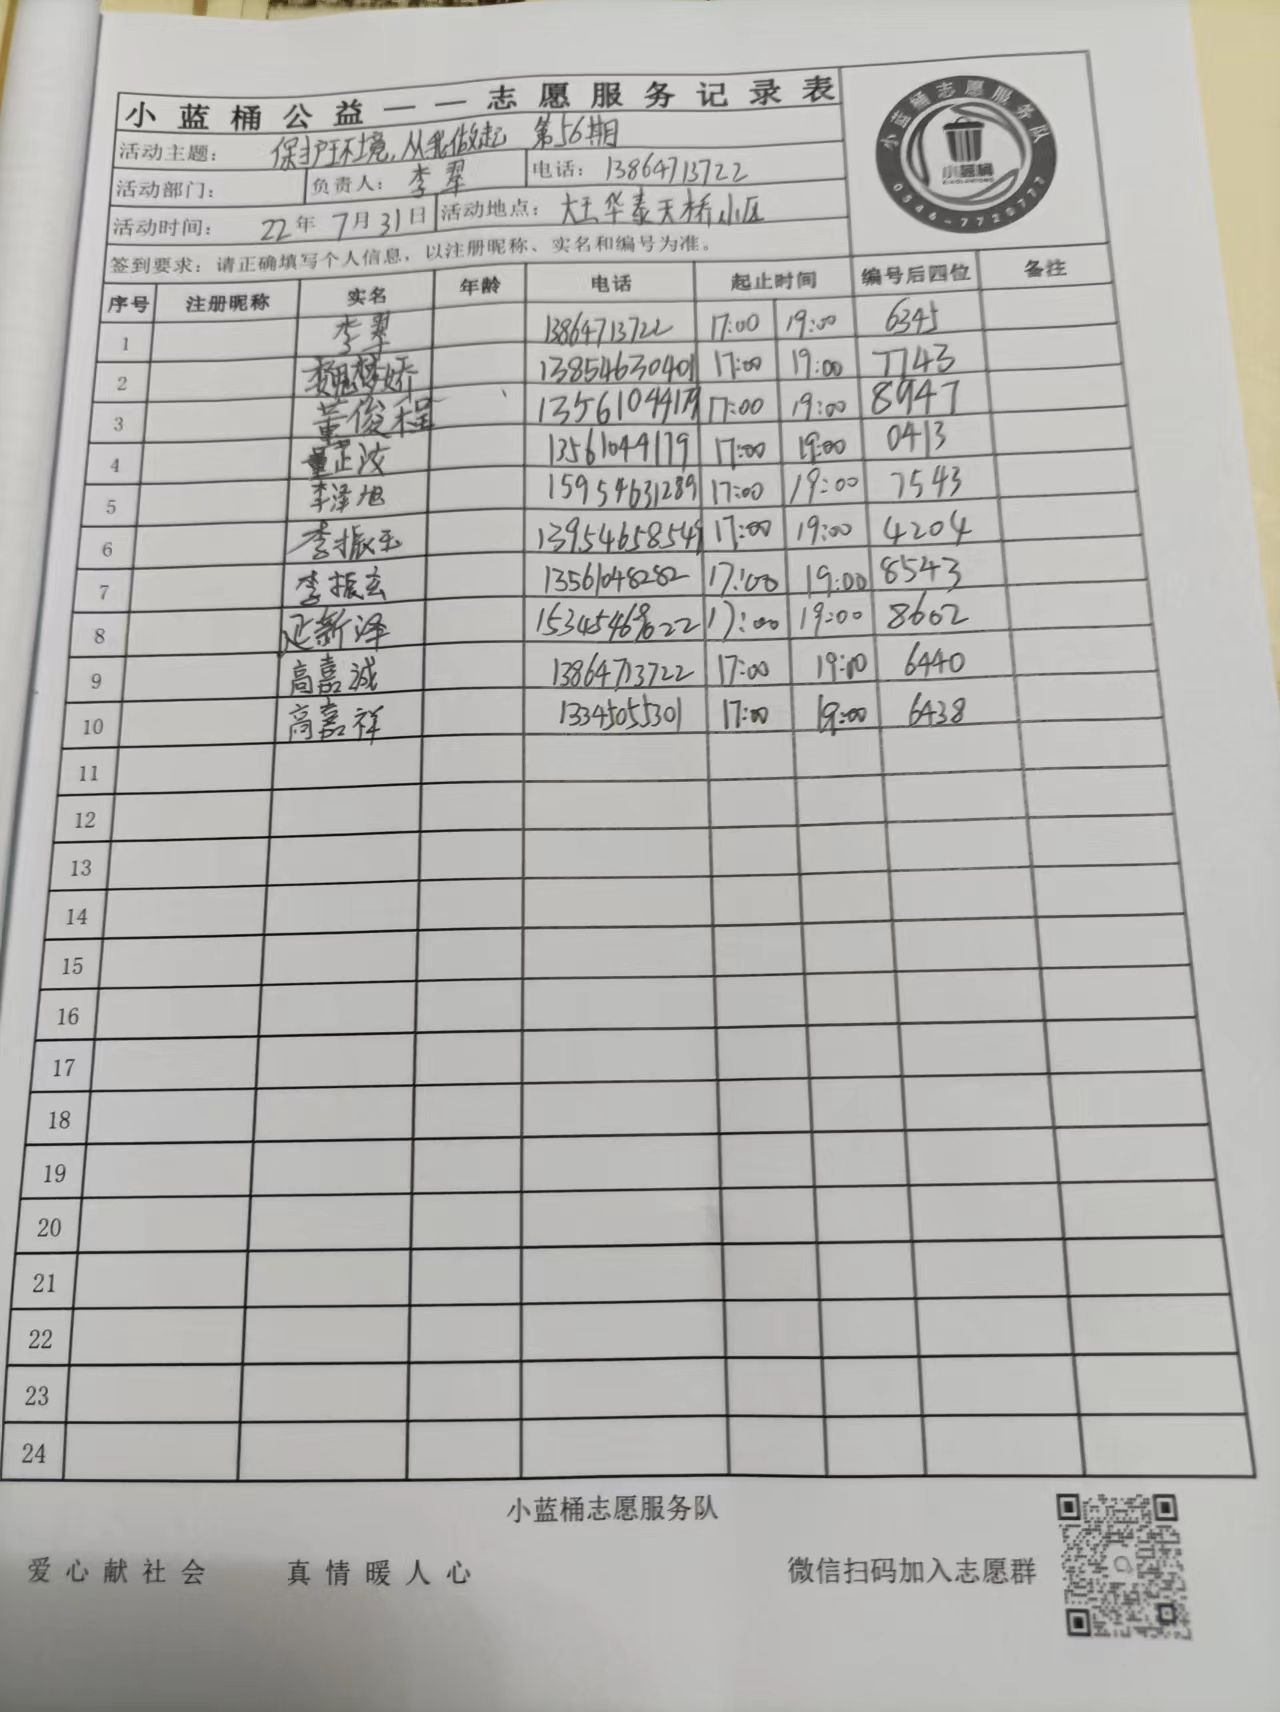 小蓝桶公益——志愿服务记录表
小蓝桶志愿服务队
小蓝桶
XIAOLANTONG
0546-7720777
活动主题： 保护环境,从我做起 第56期
活动部门： 负责人： 李翠 电话： 13864713722
活动时间： 22年 7月31日 活动地点： 大王华泰天桥小区
签到要求：请正确填写个人信息，以注册昵称、实名和编号为准。
序号 注册昵称 实名 年龄 电话 起止时间 编号后四位 备注
1 李翠 13864713722 17:00 19:00 6345
2 魏梦娇 13854630401 17:00 19:00 7743
3 董俊程 13561044179 17:00 19:00 8947
4 董芷汶 13561044179 17:00 19:00 0413
5 李泽旭 15954631289 17:00 19:00 7543
6 李振玉 13954658549 17:00 19:00 4204
7 李振玄 13561048282 17:00 19:00 8543
8 延新泽 17:00 19:00 8602
9 高嘉诚 13864713722 17:00 19:00 6440
10 高嘉祥 13345055301 17:00 19:00 6438
11
12
13
14
15
16
17
18
19
20
21
22
23
24
小蓝桶志愿服务队
爱心献社会 真情暖人心 微信扫码加入志愿群